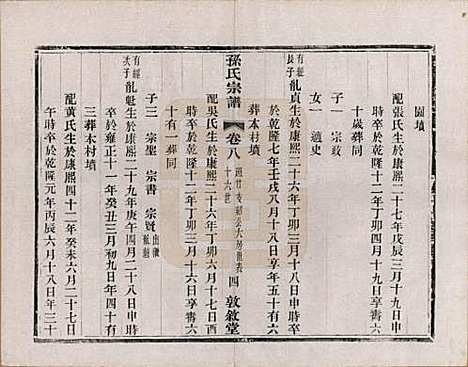 園墳
配張氏生於康熙二十七年戊辰三月十九日申
時卒於乾隆十二年丁卯三月十九日享壽六
十歲葬同
子一 宗岐
女一 適史
有經長子
亂貞生於康熙二十六年丁卯三月十八日
於乾隆七年壬戌八月十八日享年五十有六
葬本村墳
配吳氏生於康熙二十六年丁卯六月十七日酉
時卒於乾隆十二年丁卯三月十六日享壽六
十有一葬同
孫氏宗譜
卷八
十六世
四
敦敘堂
有經次子
亂魁生於康熙二十九年庚午四月二十八日
卒於雍正十一年癸丑三月初九日年四十有
四葬本村墳
子三 宗聖 宗書 宗賢
配黃氏生於康熙四十二年癸未六月二十七日
午時卒於乾隆元年丙辰六月十八日年三十